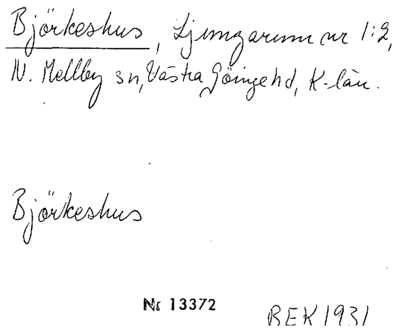 Björkeshus, Ljungarum nr 1:2,
N. Mellby sn, Västra Göinge hd, K-län.
Björkeshus
Nr 13372
BEK 1931